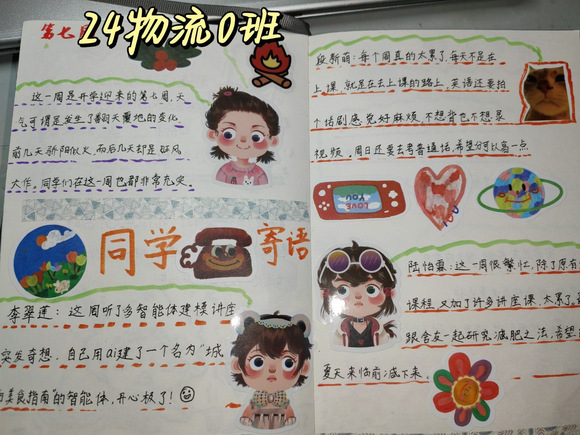 第七
24物流0班
这一周是开学迎来的第七周,天
气可谓是发生了翻天覆地的变化
前几天骄阳似火,而后几天却是狂风
大作。同学们在这一周也都非常充实。
同学 寄语
李翠莲:这周听了多智能体建模讲座
突发奇想,自己用ai建了一个名为"城
美食指南"的智能体,开心极了!
段新萌:每个周真的太累了,每天不是在
上课,就是在去上课的路上,英语还要拍
个话剧感觉好麻烦,不想背也不想录
视频,周日还要去考普通话,希望分可以高一点
LOVE
YOU
YOU
陆怡霖:这一周很繁忙,除了原有
课程,又加了许多讲座课,太累了,
跟舍友一起研究减肥之法,希望
夏天来临前减下来。